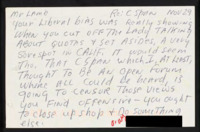 Mr Lamb Re: CSpan Nov 29
Your liberal bias was really showing
when you cut off the lady talking
about quotas & set asides. A very
sore spot in Calif. It would seem
tho, that CSpan which I, at least,
thought to be an open forum
where all could be heard, is
going to censor those views
you find offensive - You ought
to close up shop & do something
else!